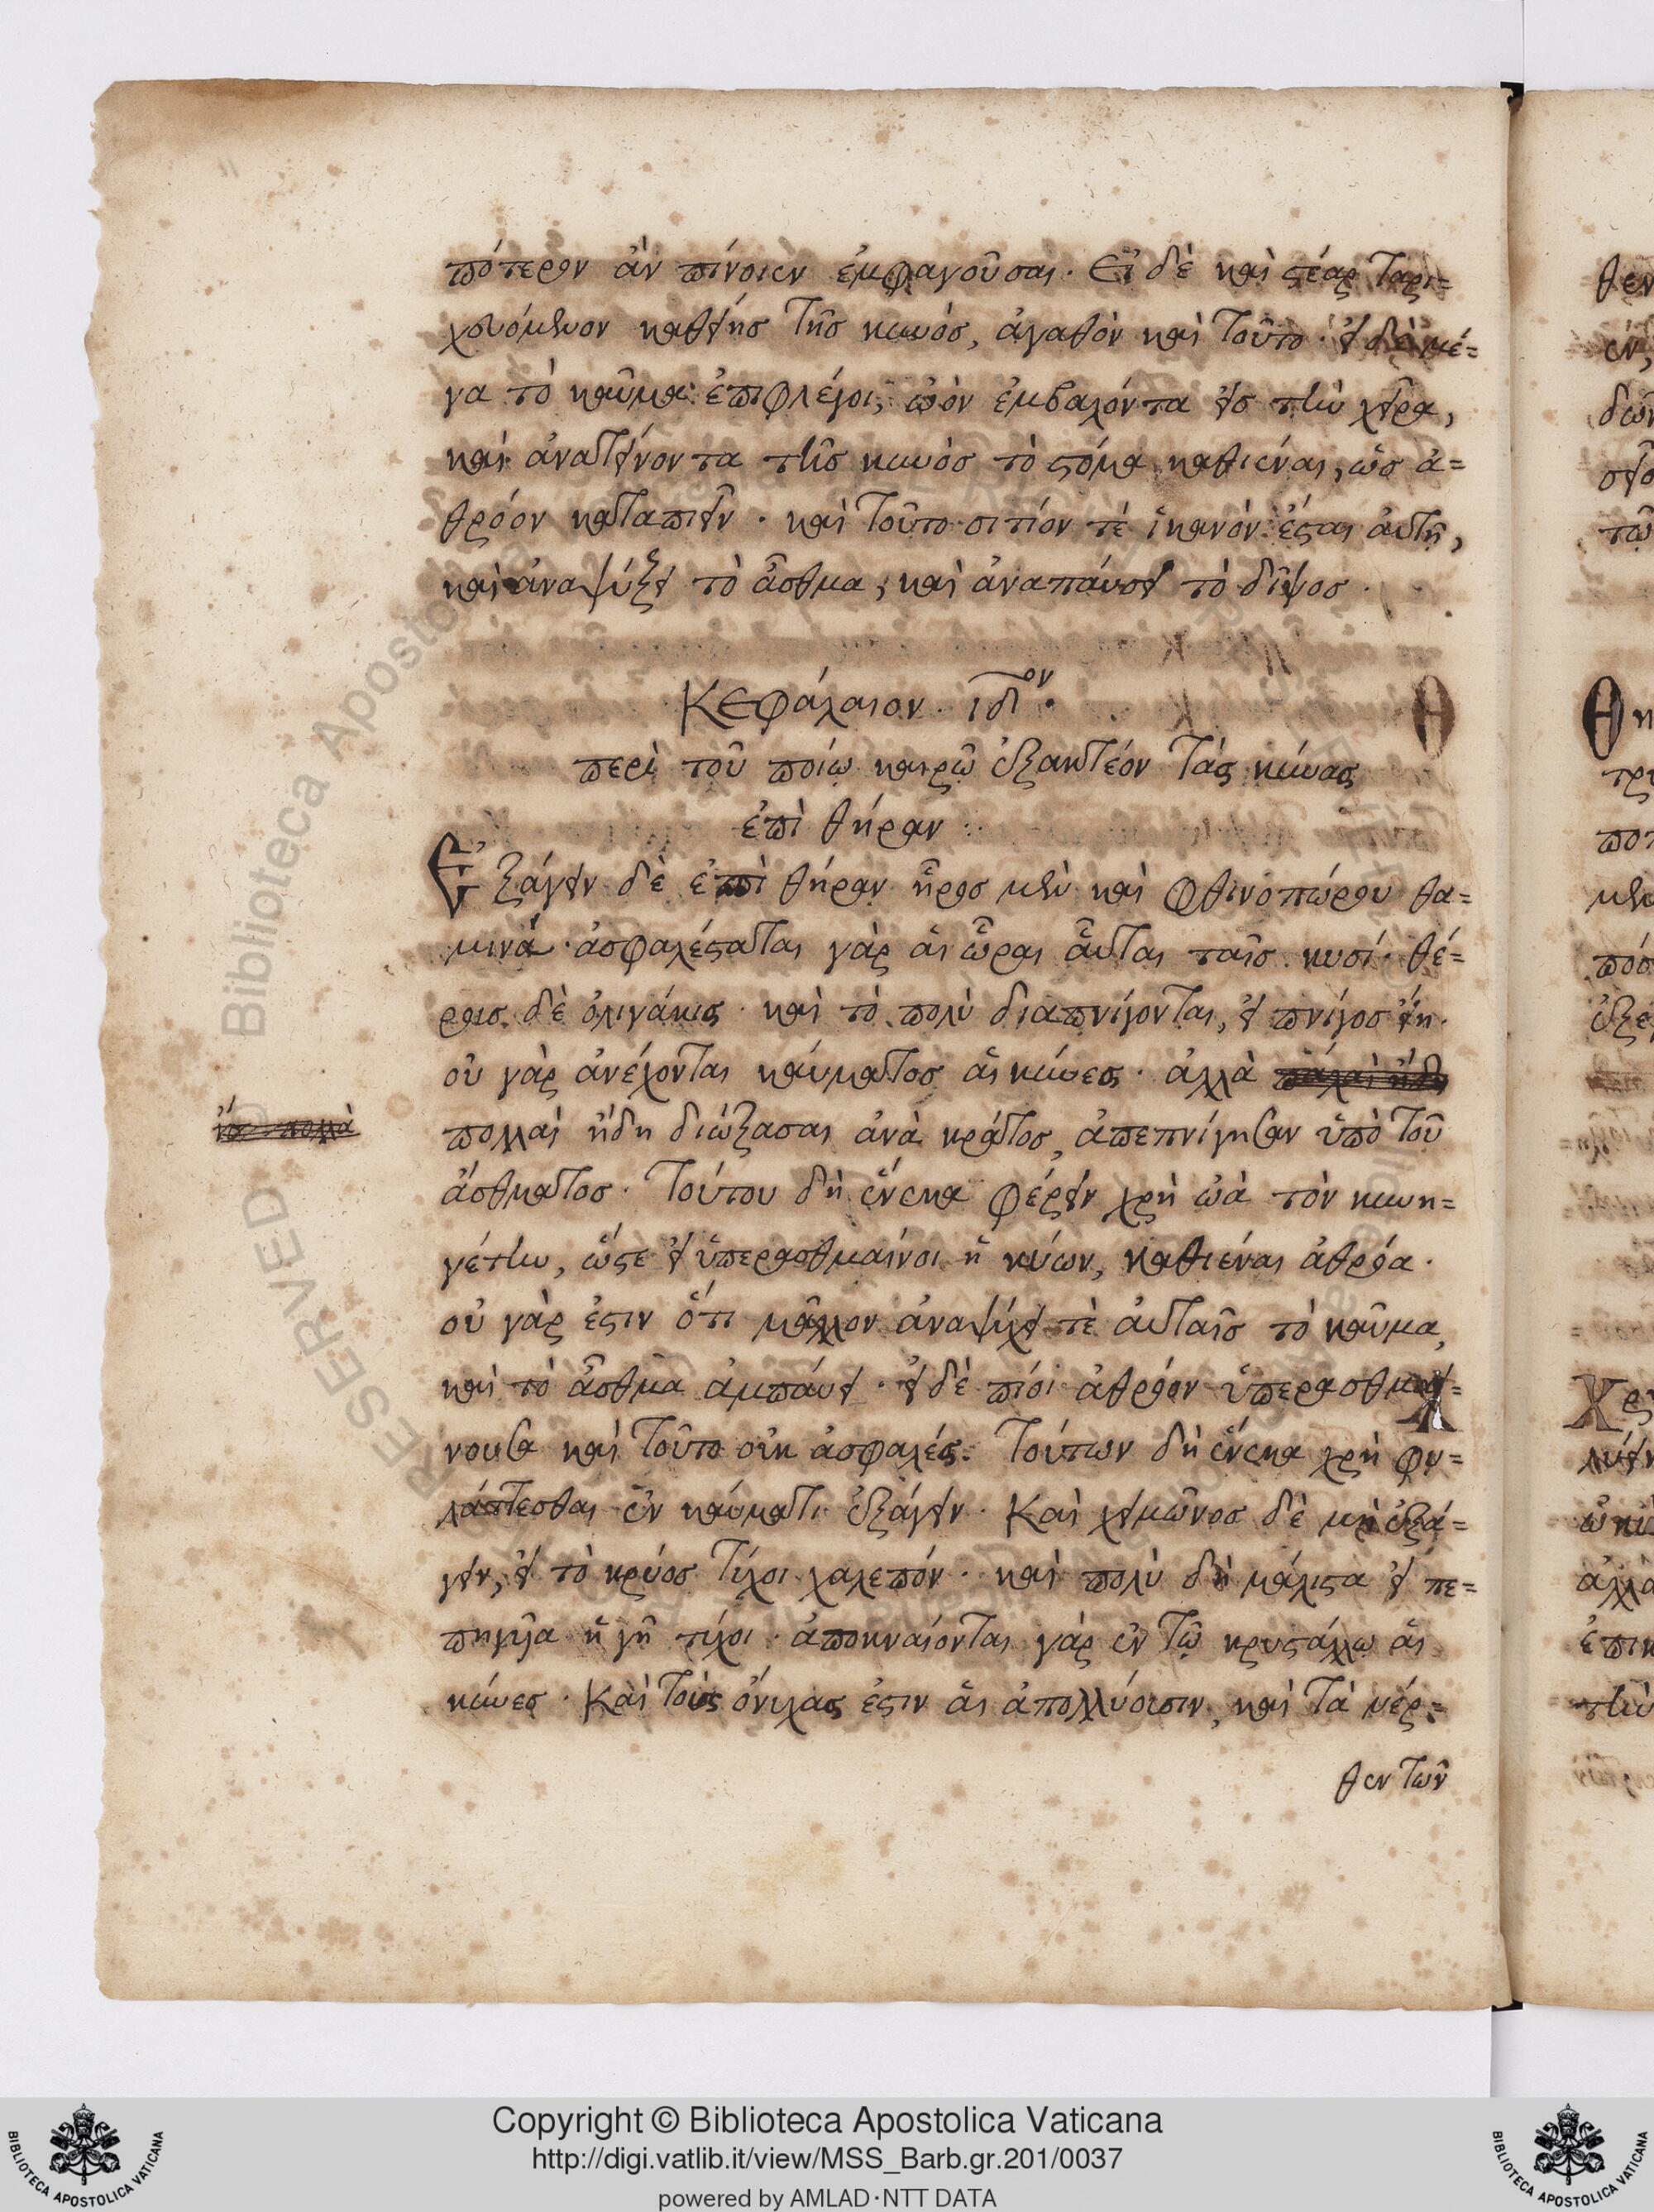 πότερον ἀν πίνοιεν ἐμφαγοῦσαι. Εἰ δὲ καὶ στέαρ ταρι=
χευόμενον καθείης τῆς κυνός, ἀγαθὸν καὶ τοῦτο. εἰ δὲ μέ=
γα τὸ καῦμα ἐπιφλέγοι, ὠὸν ἐμβαλόντα εἰς τὴν χεῖρα,
καὶ ἀνατείνοντα τῆς κυνὸς τὸ στόμα καθιέναι, ὡς ἀ=
θρόον καταπιεῖν. καὶ τοῦτο σιτίον τὲ ἱκανὸν ἔσται αὐτῇ,
καὶ ἀναψύξει τὸ ἆσθμα, καὶ ἀναπαύσει τὸ δίψος.
Κεφάλαιον. ιδ ον.
περὶ τοῦ ποίῳ καιρῷ ἐξακτέον τὰς κύνας
ἐπὶ θήραν.
Ἐξάγειν δὲ ἐπὶ θήραν ἦρος μὲν καὶ φθινοπώρου θα=
μινά. ἀσφαλέσταται γὰρ αἱ ὧραι αὗται ταῖς κυσί. θέ=
ρους δὲ ὀλιγάκις. καὶ τὸ πολὺ διαπνίγονται, εἰ πνίγος εἴη.
οὐ γὰρ ἀνέχονται καύματος αἱ κύνες. ἀλλὰ
πολλαὶ ἤδη διώξασαι ἀνὰ κράτος, ἀπεπνίγησαν ὑπὸ τοῦ
ἄσθματος. Τούτου δὴ ἕνεκα φέρειν χρὴ ὠὰ τὸν κυνη=
γέτην, ὥστε εἰ ὑπερασθμαίνοι ἡ κύων, καθιέναι ἀθρόα.
οὐ γὰρ ἔστιν ὅτι μᾶλλον ἀναψύχει τὲ αὐταῖς τὸ καῦμα,
καὶ τὸ ἆσθμα ἀμπαύει. εἰ δὲ πίοι ἀθρόον ὑπερασθμαί=
νουσα καὶ τοῦτο οὐκ ἀσφαλές. Τούτων δὴ ἕνεκα χρὴ φυ=
λάττεσθαι ἐν καύματι ἐξάγειν. Καὶ χειμῶνος δὲ μὴ ἐξά=
γειν, εἰ τὸ κρύος τύχοι χαλεπόν. καὶ πολὺ δὴ μάλιστα εἰ πε=
πηγυῖα ἡ γῆ τύχοι. ἀποκναίονται γὰρ ἐν τῷ κρυστάλλῳ αἱ
κύνες. Καὶ τοὺς ὄνυχας ἔστιν αἱ ἀπολλύουσιν, καὶ τὰ νέρ=
θεν τῶν